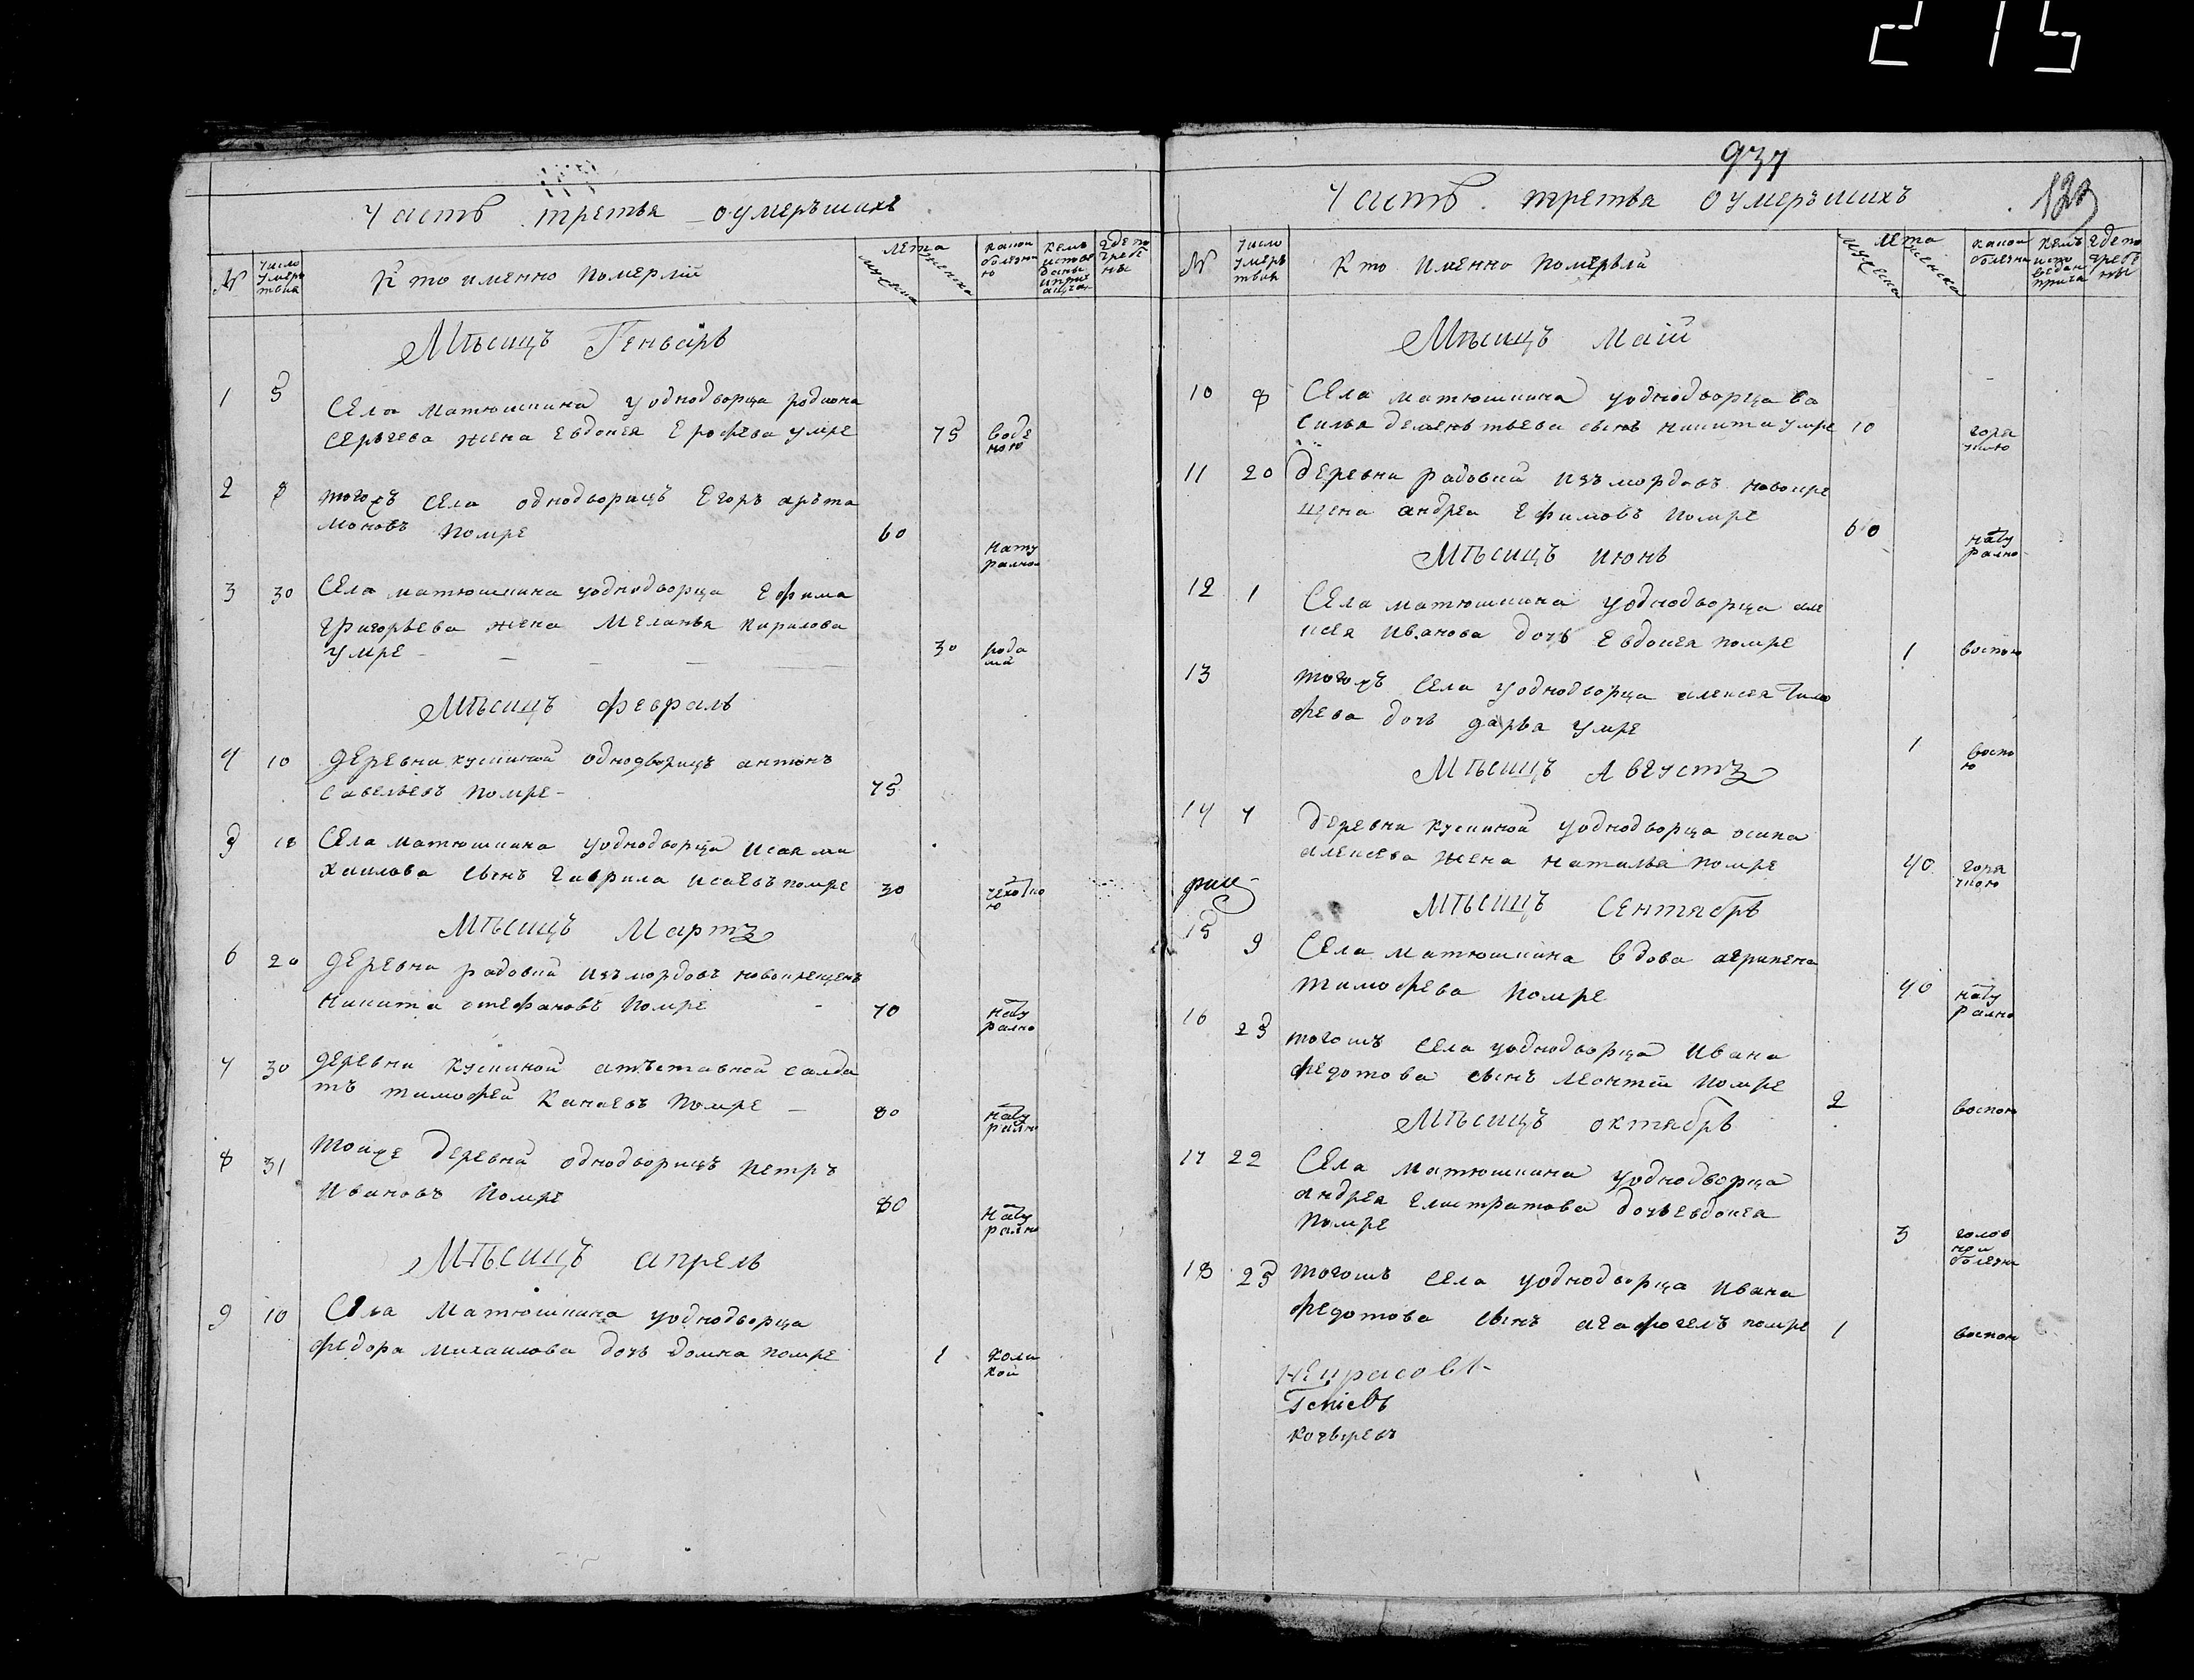 215
Часть третья оумерьшихъ
№
число умертвия
Кто именно померлій
лета
мужеска
женска
какой болезнию
кемъ исповеданы и причащены
где погребены
Мѣсицъ Генваръ
1 5 Села матюшкина уоднодворца родиона
сергеева жена Евдокея Ерофеева умре 75 воденою
2 8 тогожъ села однодворицъ Егоръ арьта
моновъ помре 60 натуралною
3 30 Села матюшкина уоднодворца Ефима
григорьева жена Меланья кирилова
умре 30 родами
Мѣсицъ февраль
4 10 деревни кускиной однодворицъ антонъ
савельевъ помре 75
5 18 Села матюшкина уоднодворца исая ми
хаилова сынъ гаврила исаевъ помре 30 чехоткою
Мѣсицъ Мартъ
6 20 деревни радовки изъ мордовъ новокрещенъ
никита стефановъ помре 70 натуралною
7 30 деревни кускиной отъставной салда
тъ тимофей Канаевъ помре 80 натуралною
8 31 тойже деревни однодворицъ петръ
ивановъ помре 80 натуралною
Мѣсицъ апрель
9 10 Села Матюшкина уоднодворца
федора михаилова дочь домна помре 1 коликой
937
123
Часть третья оумеръшихъ
№
число умерьтвия
Кто именно померьли
лета
мужеска
женска
какой болезни
кемъ исповедан прича
где погребены
Мѣсицъ маій
10 8 Села матюшкина уоднодворца ва
силья дементьева сынъ никита умре 10 горячкою
11 20 деревни радовки изъ мордовъ новокре
щена андреи Ефимовъ помре 60 натуралною
Мѣсицъ июнь
12 1 Села матюшкина уоднодворца але
ксея иванова дочь Евдокея помре 1 воспою
13 тогожъ села уоднодворца алексея тимо
феева дочь дарья умре 1 воспою
Мѣсицъ Августъ
14 7 деревни кускиной уоднодворца осипа
алексеева жена наталья помре 40 горячкою
Мѣсицъ сентябрь
15 9 Села матюшкина вдова агрипена
тимофеева помре 40 натуралною
16 25 тогошъ села уоднодворца ивана
федотова сынъ леонтий помре 2 воспою
Мѣсицъ октябрь
17 22 Села матюшкина уоднодворца
андрея Елистратова дочь евдокея
помре 3 головной болезни
18 25 тогошъ села уоднодворца ивана
федотова сынъ агафогелъ помре 1 воспою